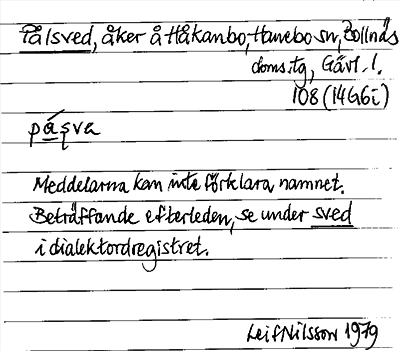 Pålsved, åker å Håkanbo, Hanebo sn, Bollnäs
doms.tg, Gävl. l.
108 (14G6i)
påsva
Meddelarna kan inte förklara namnet.
Beträffande efterleden, se under sved
i dialektordregistret.
Leif Nilsson 1979